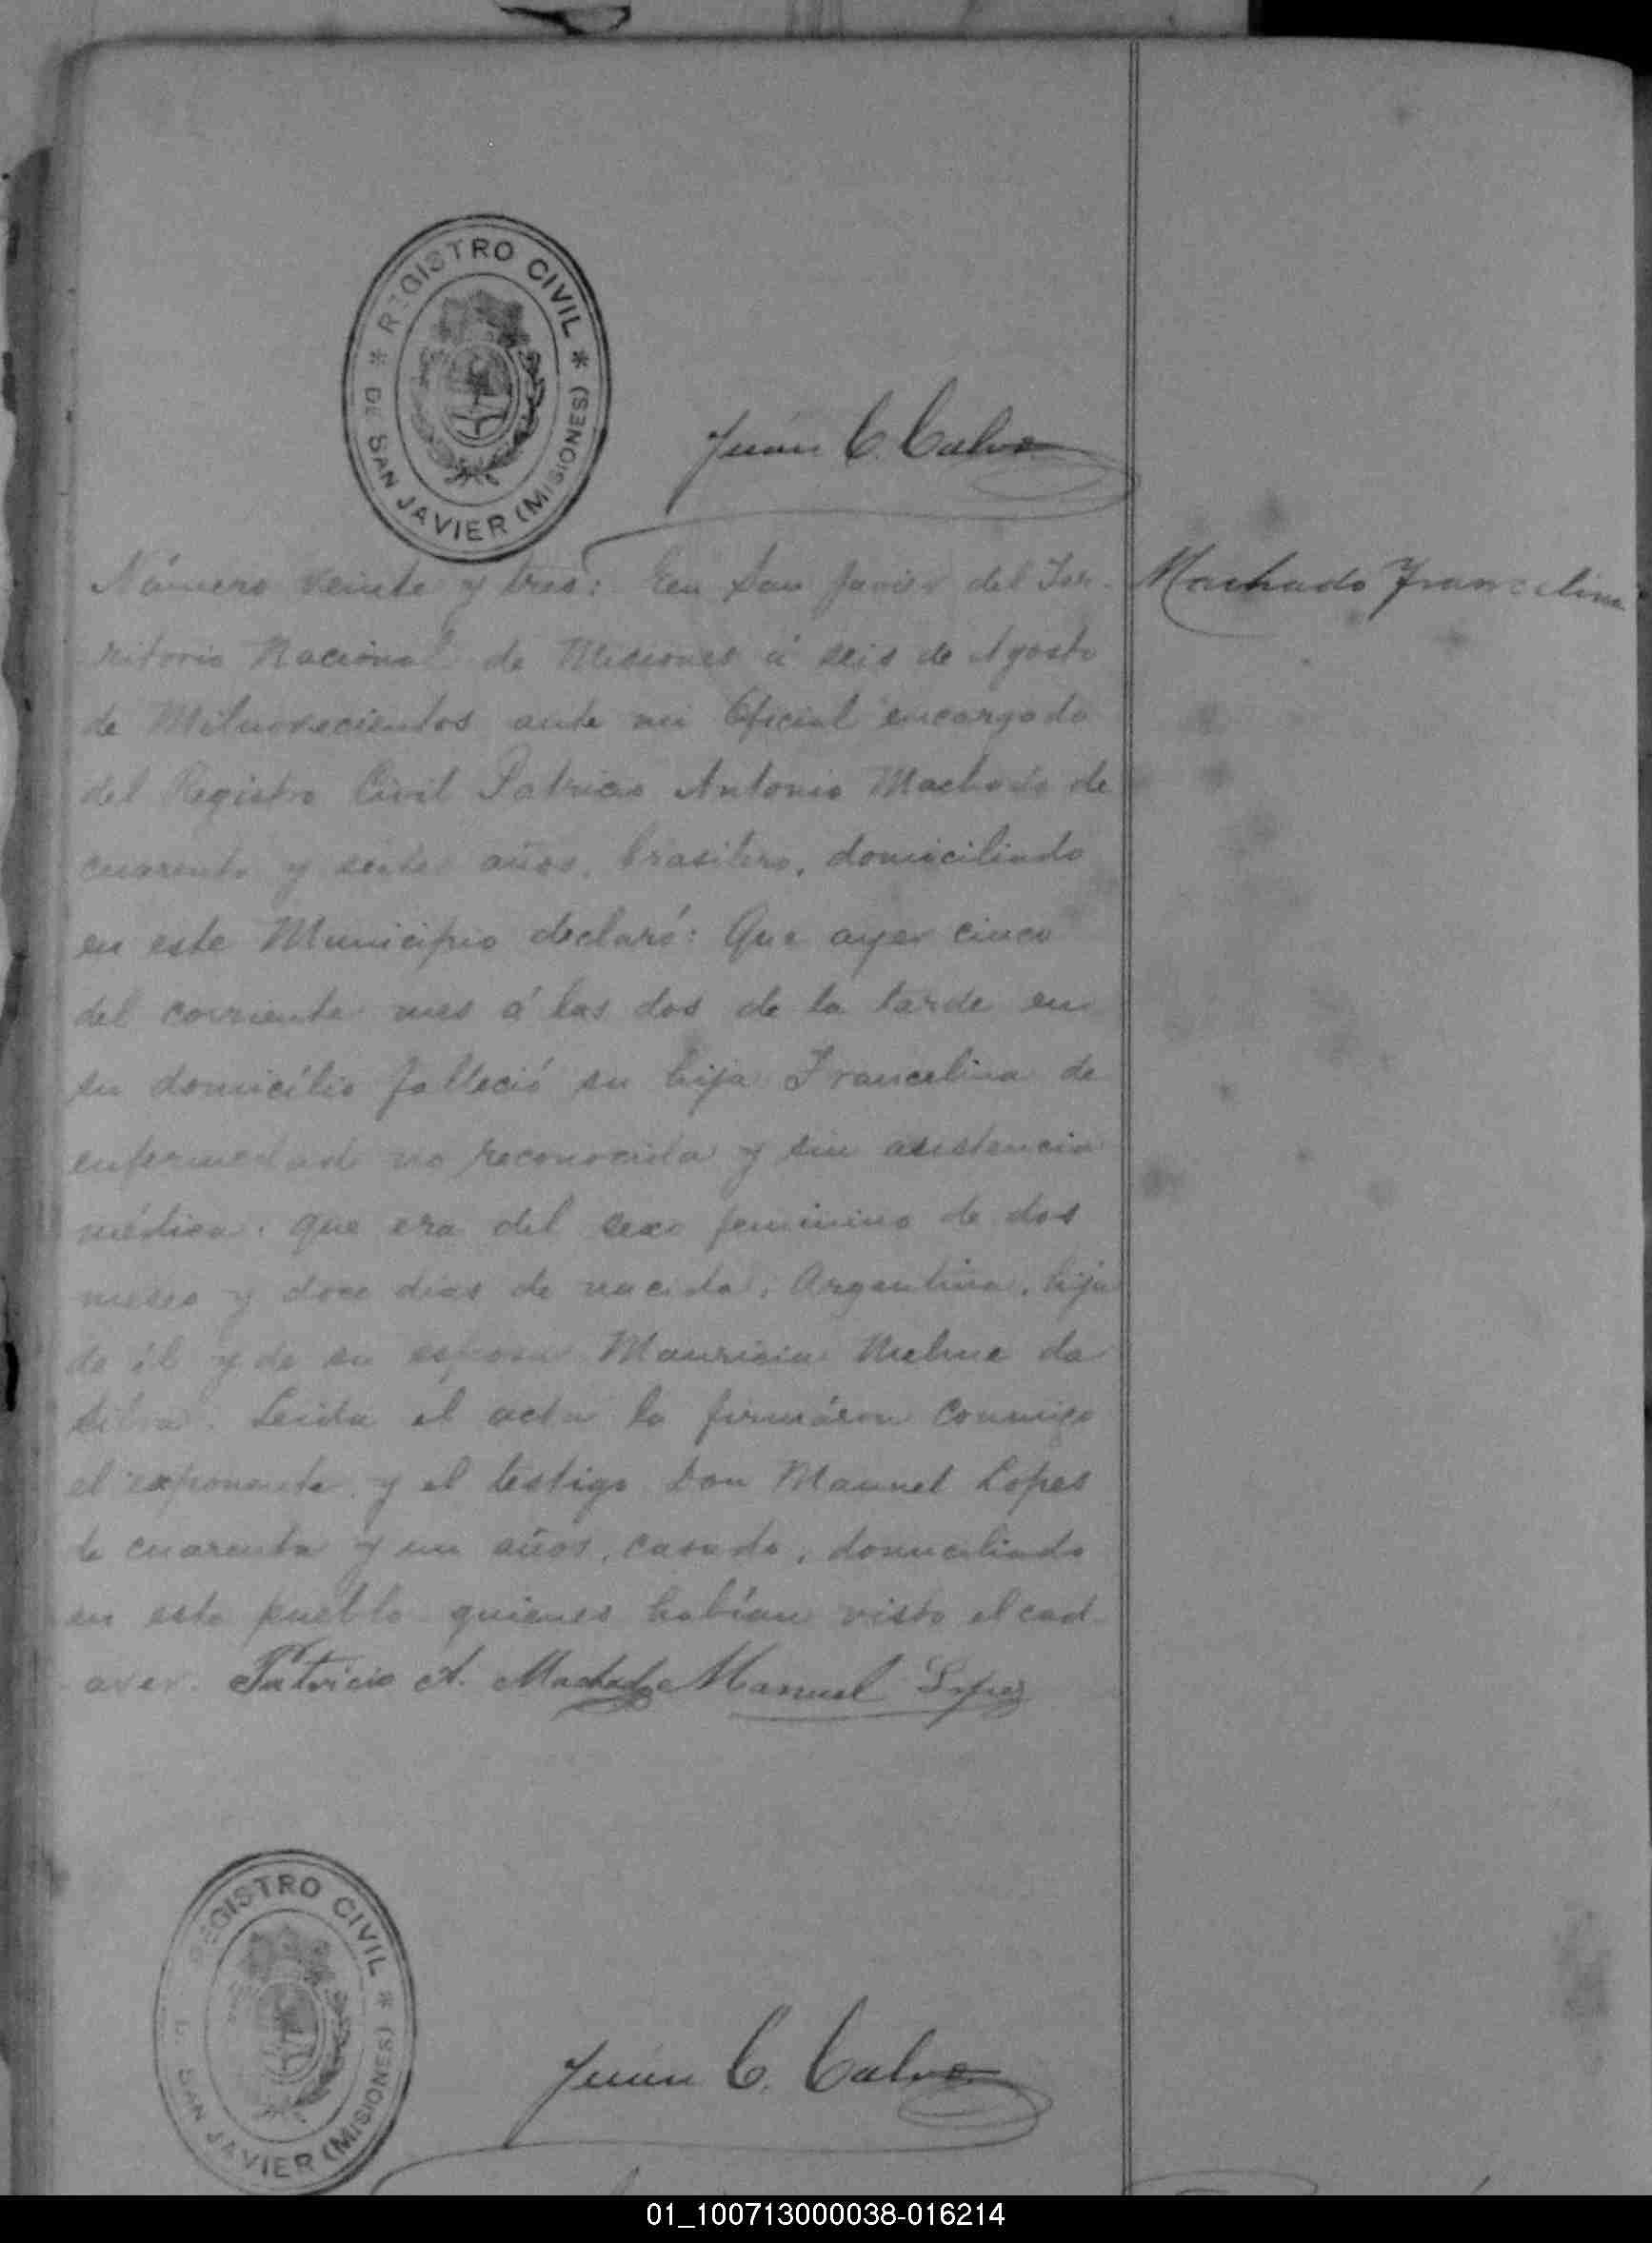 REGISTRO CIVIL
DE SAN JAVIER (MISIONES)
Juan C. Calvo
Número veinte y tres: En San Javier del Ter-
Machado Francelina
ritorio Nacional de Misiones á seis de Agosto
de Milnovecientos ante mi Oficial encargado
del Registro Civil Patricio Antonio Machado de
cuarenta y siete años, brasilero, domiciliado
en este Municipio declaró: Que ayer cinco
del corriente mes á las dos de la tarde en
su domicilio falleció su hija Francelina de
enfermedad no reconocida y sin asistencia
médica. que era del sexo feminino de dos
meses y doce dias de nacida, Argentina, hija
de él y de su esposa Mauricia da
Silva. Leida el acta la firmáron conmigo
el exponente y el testigo Don Manuel Lopes
de cuarenta y un años, casado, domiciliado
en este pueblo quienes habían visto el cad-
aver. Patricio A. Machado Manuel Lopez
REGISTRO CIVIL
SAN JAVIER (MISIONES)
Juan C. Calvo
01_100713000038-016214